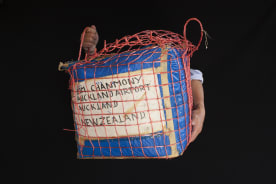 CHANMONY
AUCKLAND AIRPORT
AUCKLAND
NEWZEALAND